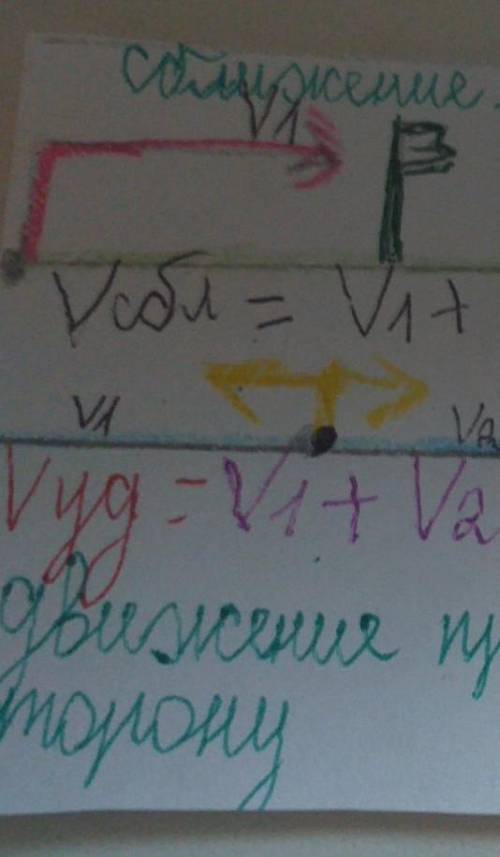 сближение
V1
Vсбл = V1 +
V1 V2
Vуд = V1 + V2
движение